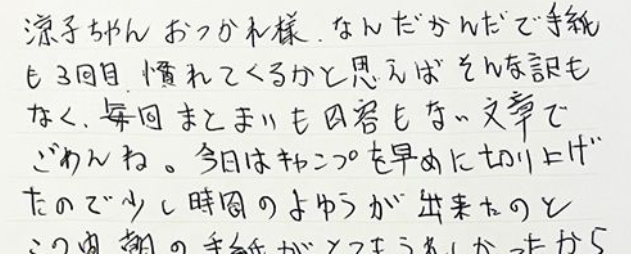 涼子ちゃん おつかれ様. なんだかんだで手紙
も3回目. 慣れてくるかと思えば そんな訳も
なく、毎回 まとまりも内容もない文章で
ごめんね。今日はキャンプを早めに切り上げ
たので少し時間のよゆうが出来たのと
この内 朝の手紙がとてもうれしかったから